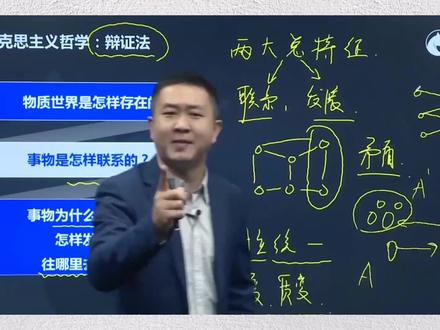 克思主义哲学:辩证法
物质世界是怎样存在的
事物是怎样联系的?
事物为什么
怎样发
往哪里去
两大总特征
联系、发展
矛盾
A'
性统一
A
变、质变